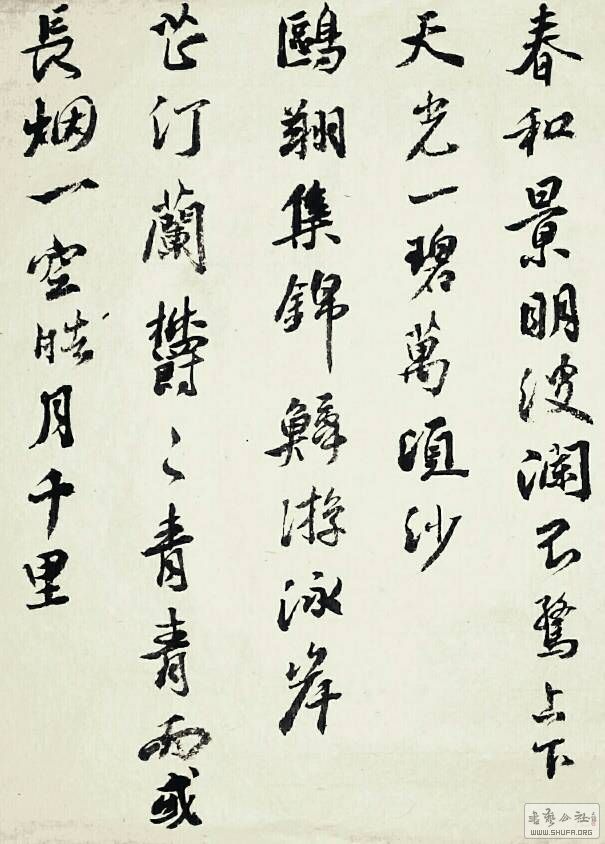 春和景明波瀾不驚上下
天光一碧萬頃沙
鷗翔集錦鱗游泳岸
芷汀蘭欝〻青青而或
長烟一空皓月千里
書藝公社
WWW.SHUFA.ORG